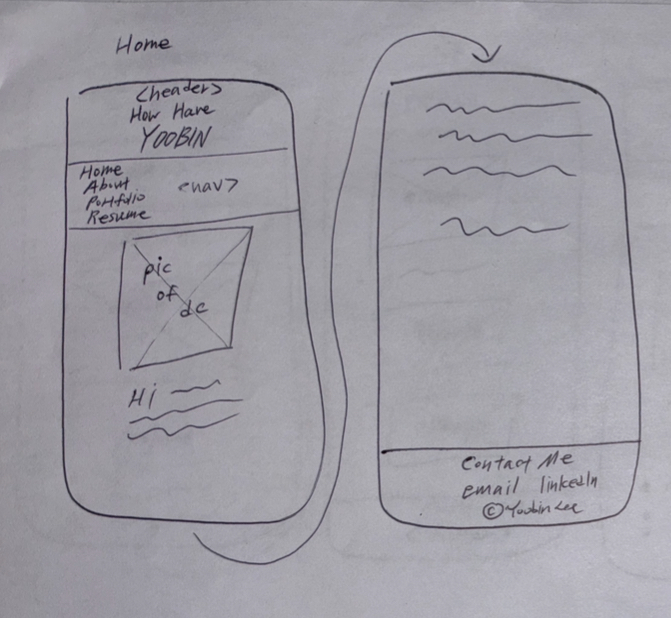 Home
<header>
How Hare
YOOBIN
Home
About
Portfolio
Resume
<nav>
pic
of
dc
Hi
Contact Me
email linkedIn
© Yoobin Lee